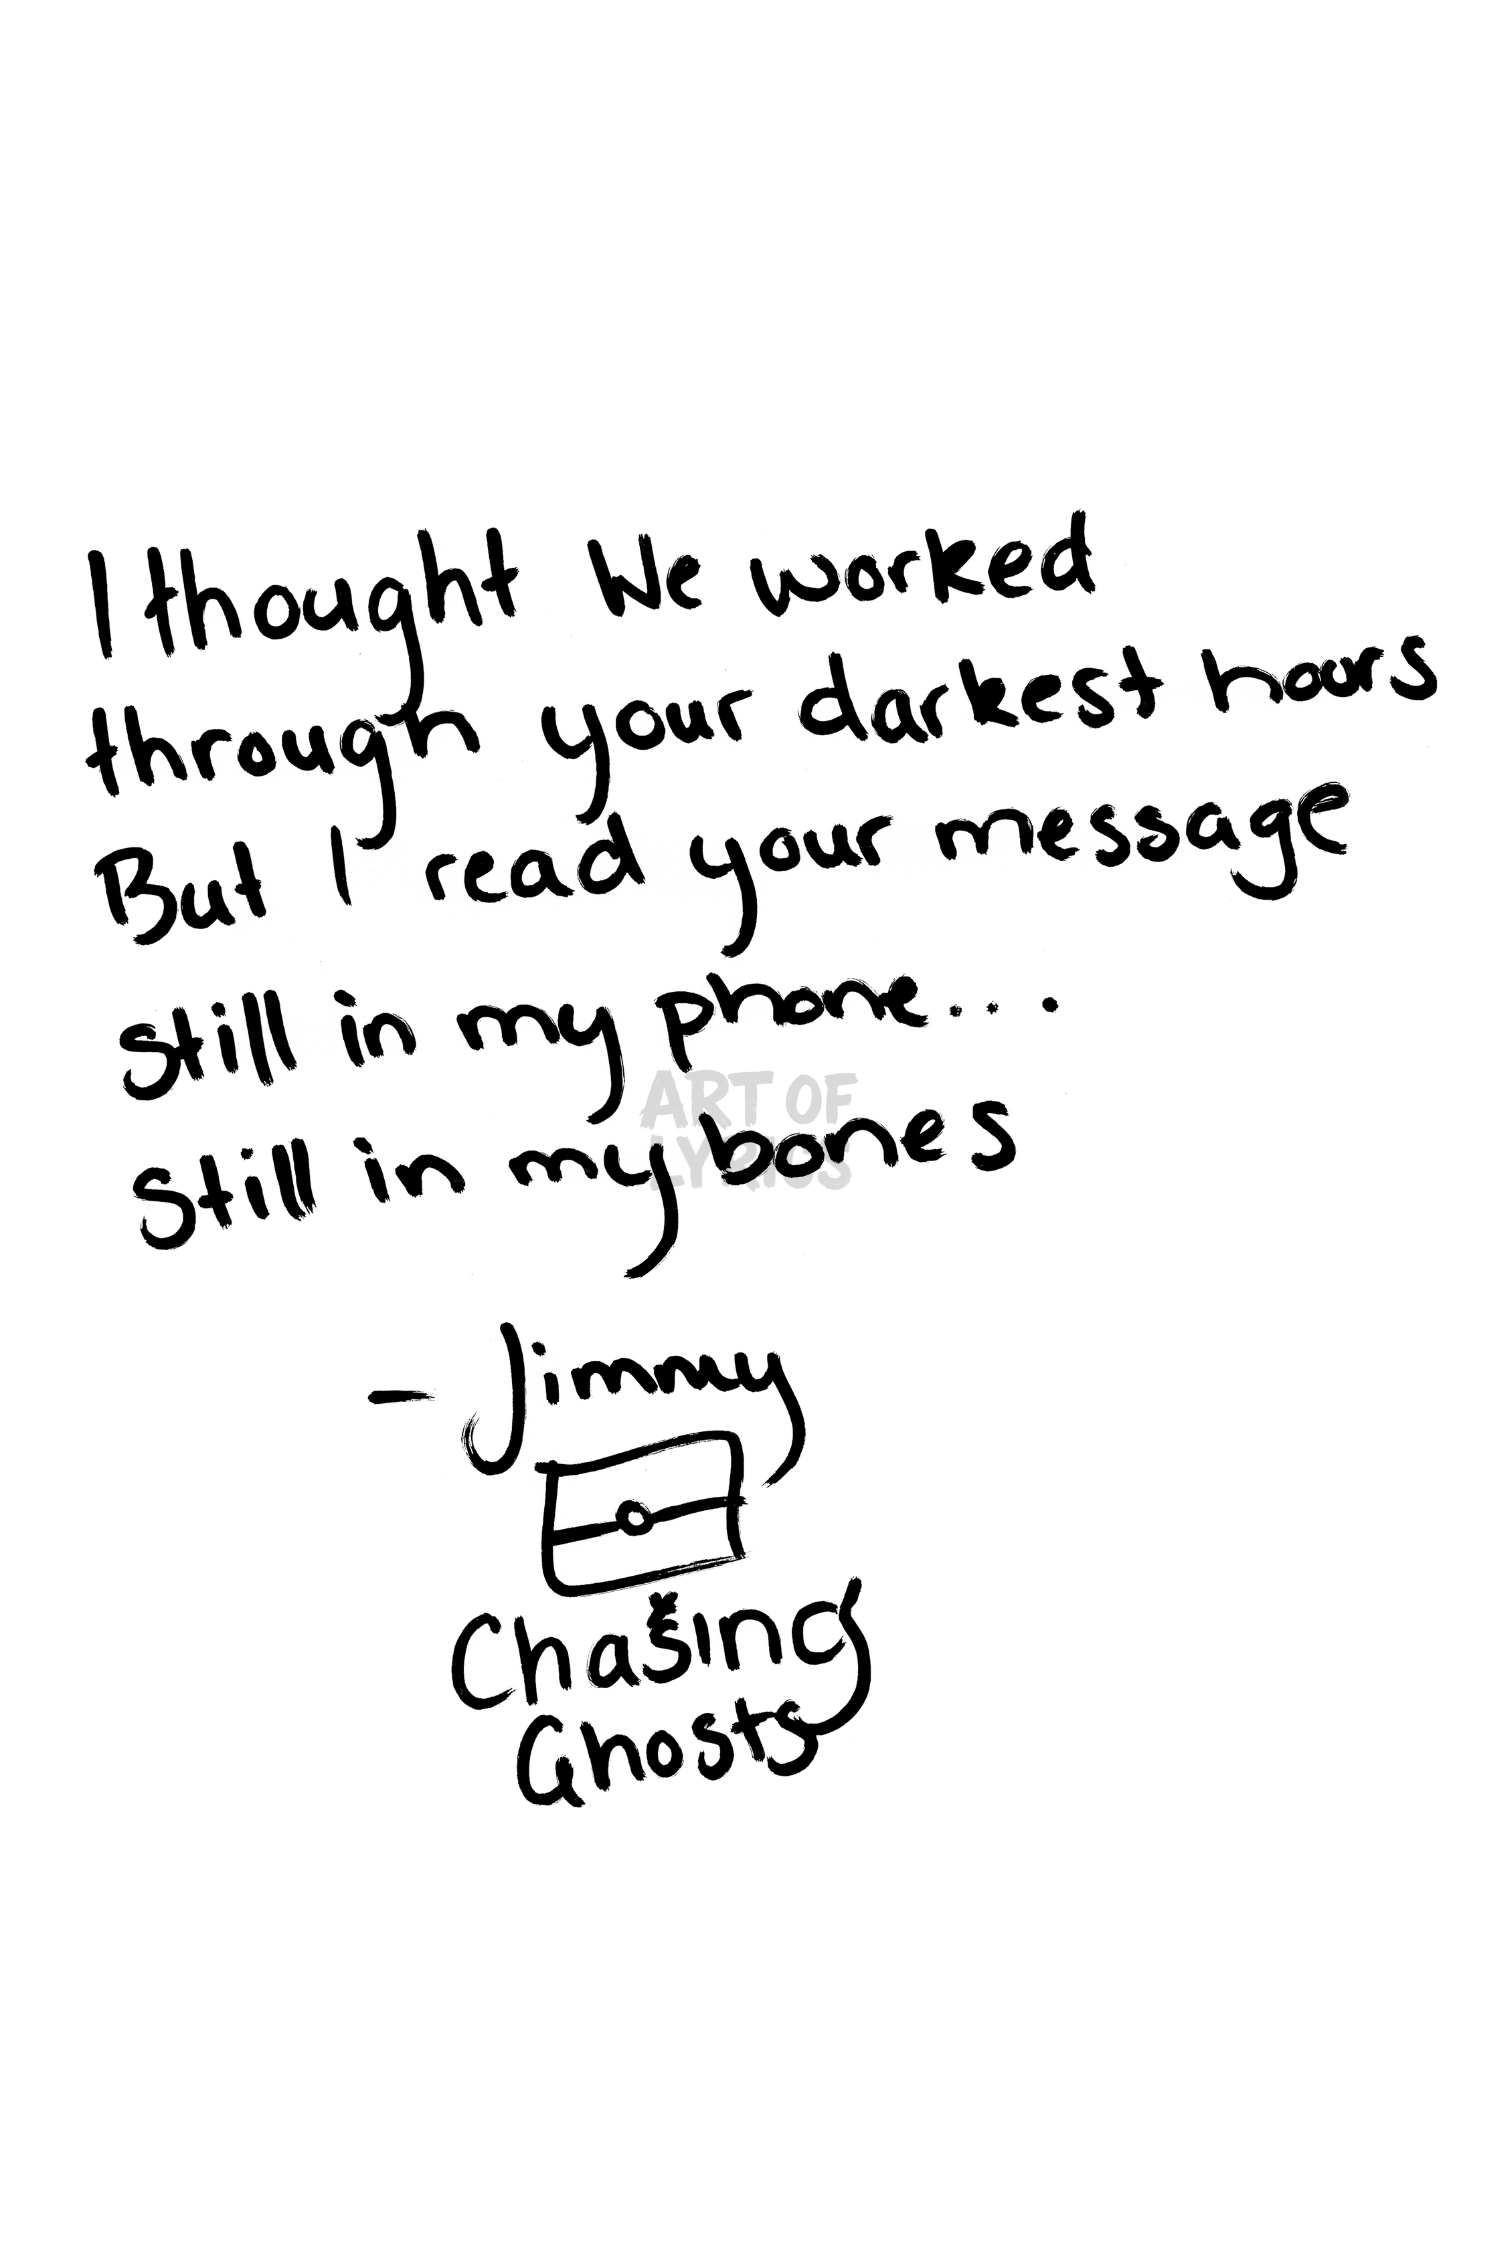 I thought We worked
through your darkest hours
But I read your message
still in my phone...
ART OF
LYRICS
still in my bones
- Jimmy
Chasing
Ghosts